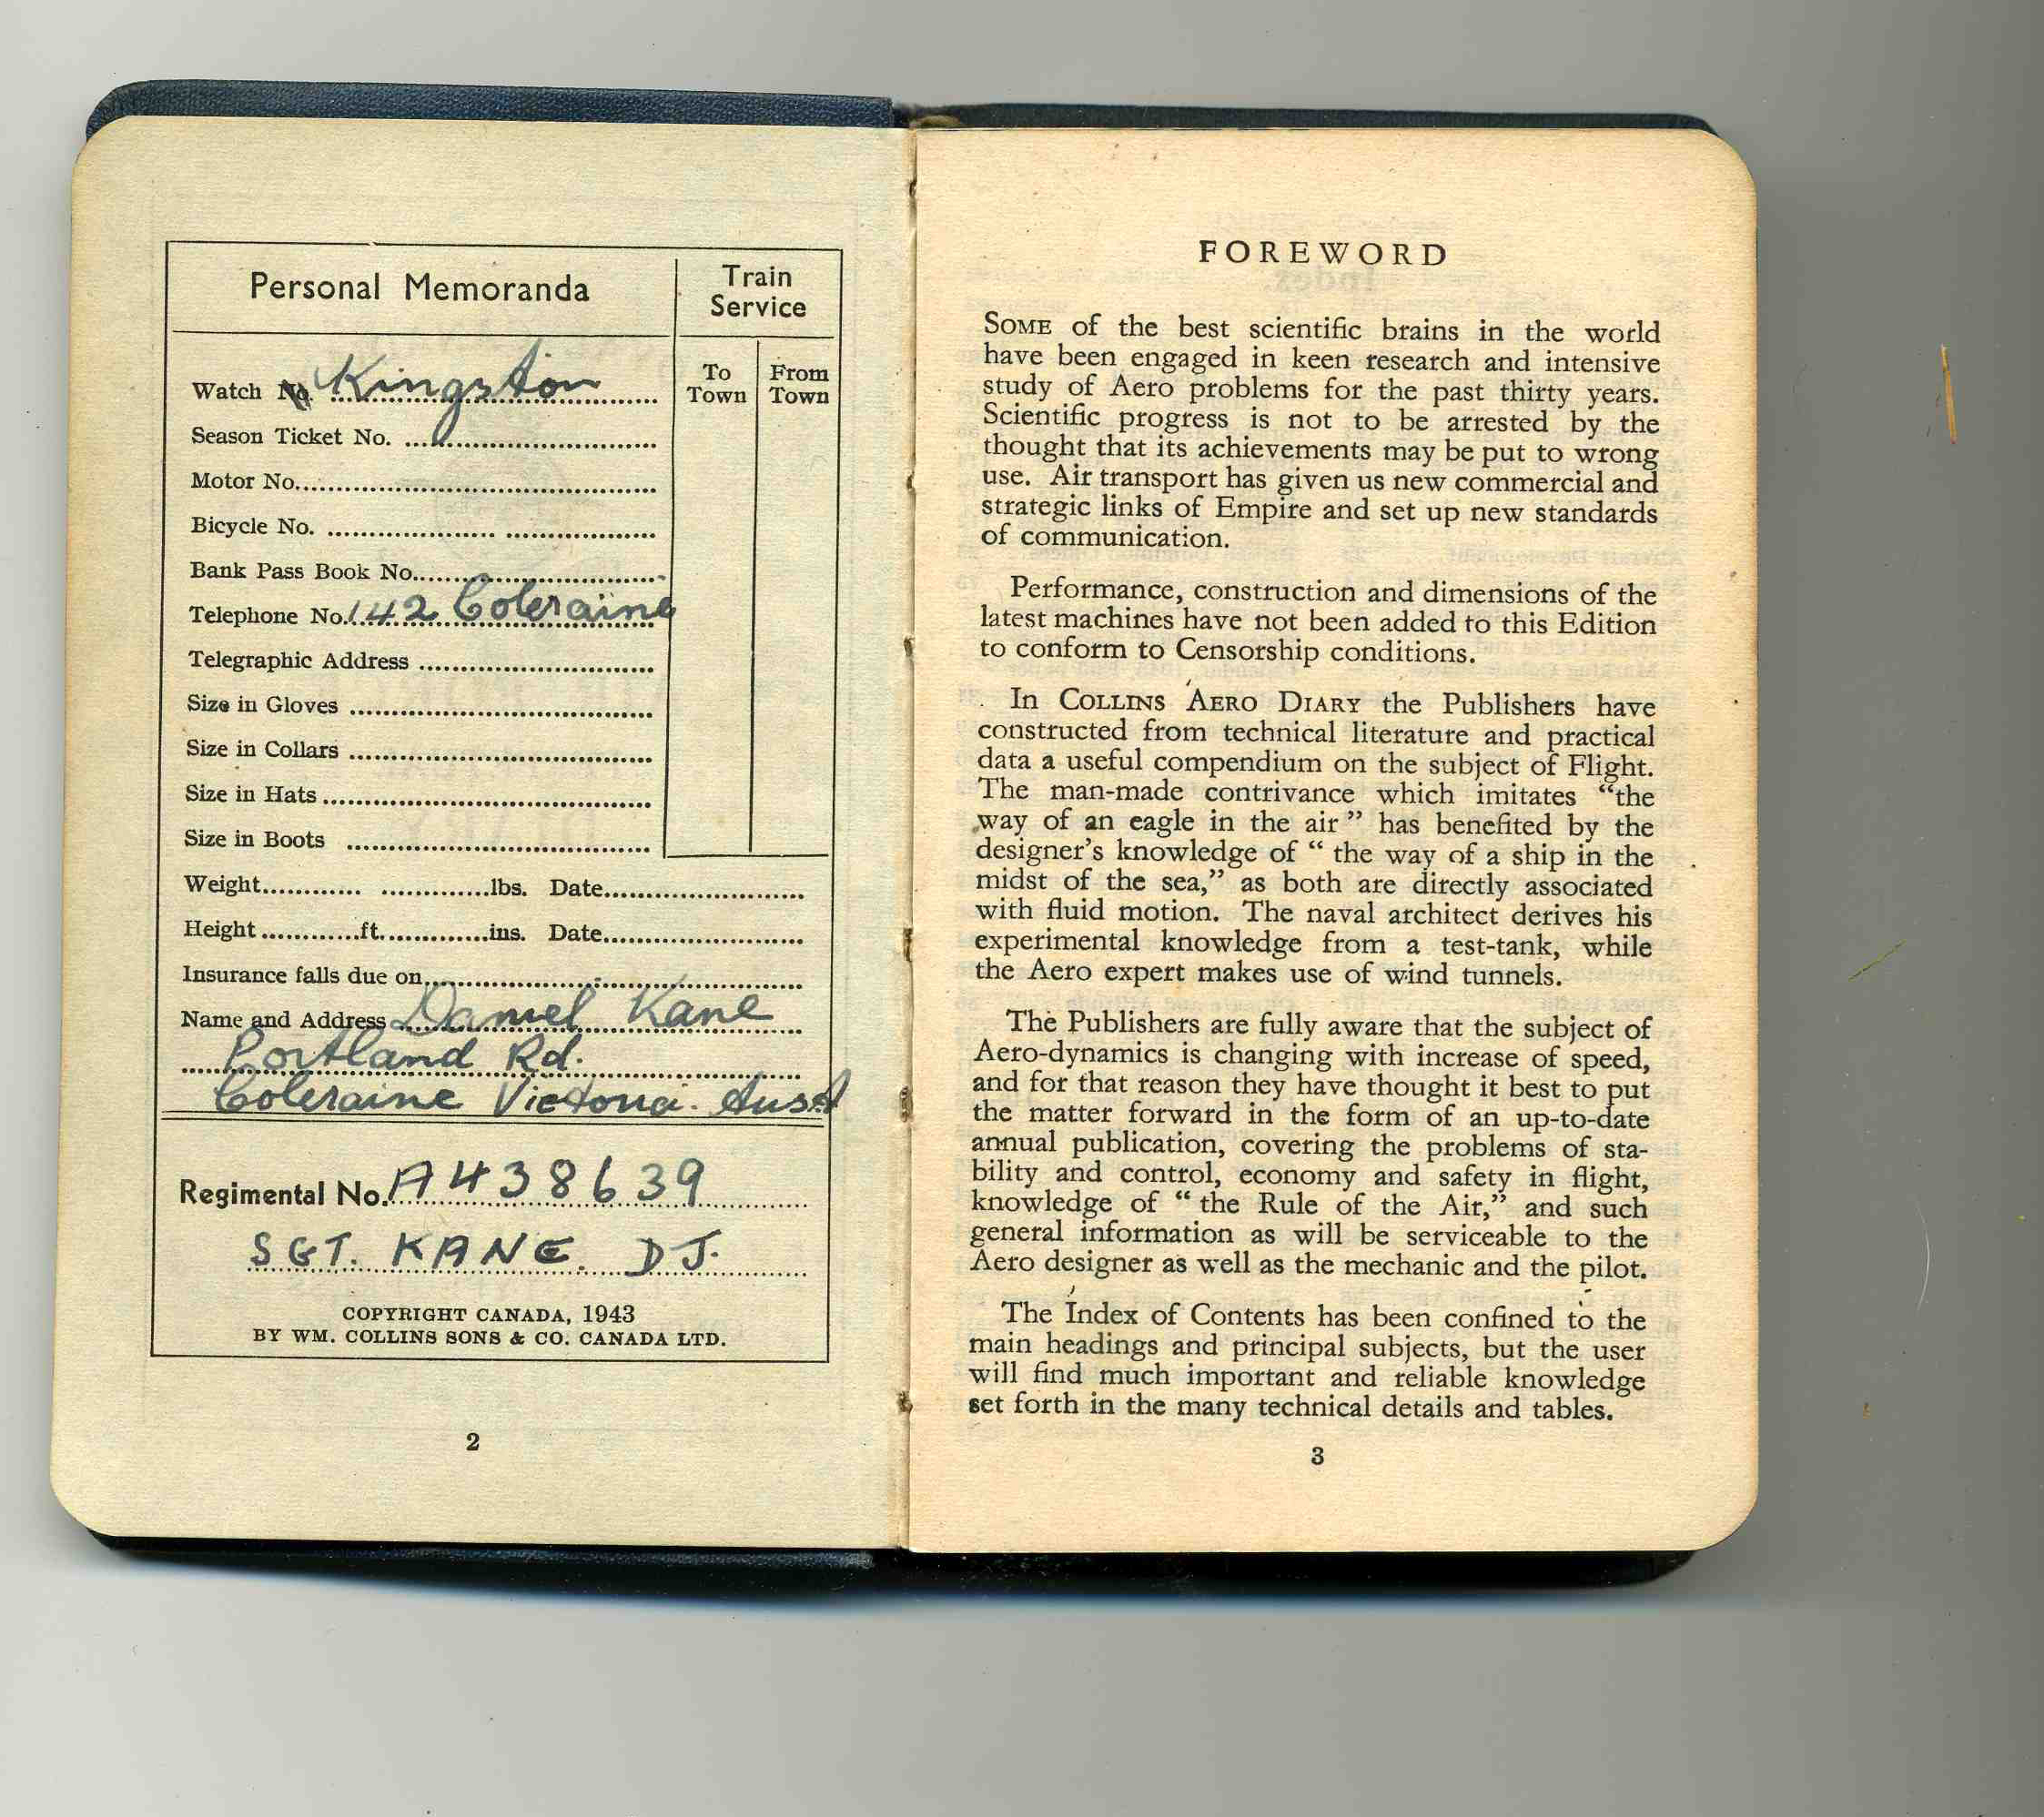 Personal Memoranda
Train
Service
To
Town
From
Town
Watch No. Kingston
Season Ticket No.
Motor No.
Bicycle No.
Bank Pass Book No.
Telephone No. 142 Coleraine
Telegraphic Address
Size in Gloves
Size in Collars
Size in Hats
Size in Boots
Weight lbs. Date
Height ft. ins. Date
Insurance falls due on
Name and Address Daniel Kane
Portland Rd.
Coleraine Victoria. Aust
Regimental No. A438639
SGT. KANE. DJ.
COPYRIGHT CANADA, 1943
BY WM. COLLINS SONS & CO. CANADA LTD.
2
FOREWORD
SOME of the best scientific brains in the world
have been engaged in keen research and intensive
study of Aero problems for the past thirty years.
Scientific progress is not to be arrested by the
thought that its achievements may be put to wrong
use. Air transport has given us new commercial and
strategic links of Empire and set up new standards
of communication.
Performance, construction and dimensions of the
latest machines have not been added to this Edition
to conform to Censorship conditions.
In COLLINS AERO DIARY the Publishers have
constructed from technical literature and practical
data a useful compendium on the subject of Flight.
The man-made contrivance which imitates “the
way of an eagle in the air” has benefited by the
designer's knowledge of “ the way of a ship in the
midst of the sea,” as both are directly associated
with fluid motion. The naval architect derives his
experimental knowledge from a test-tank, while
the Aero expert makes use of wind tunnels.
The Publishers are fully aware that the subject of
Aero-dynamics is changing with increase of speed,
and for that reason they have thought it best to put
the matter forward in the form of an up-to-date
annual publication, covering the problems of sta-
bility and control, economy and safety in flight,
knowledge of “ the Rule of the Air,” and such
general information as will be serviceable to the
Aero designer as well as the mechanic and the pilot.
The Index of Contents has been confined to the
main headings and principal subjects, but the user
will find much important and reliable knowledge
set forth in the many technical details and tables.
3